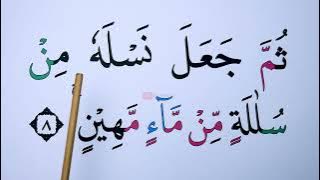 ثُمَّ جَعَلَ نَسْلَهٗ مِنْ
سُلٰلَةٍ مِّنْ مَّآءٍ مَّهِيْنٍ ﴿٨﴾